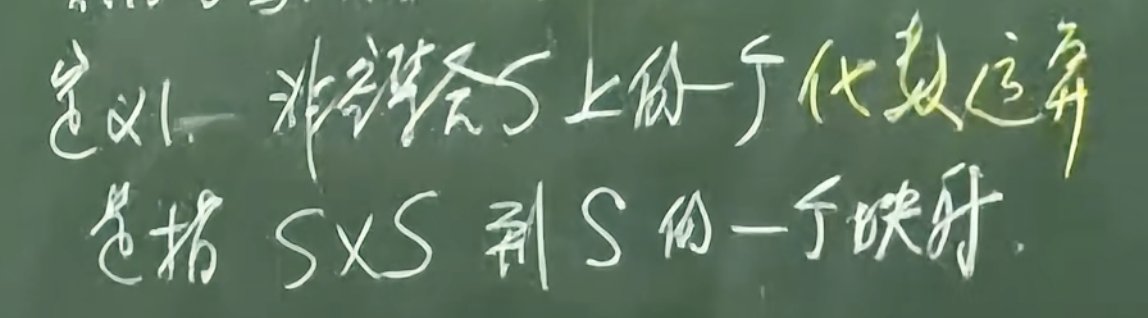 定义1. 非空集合S上的一个代数运算
是指 S×S 到 S 的一个映射.